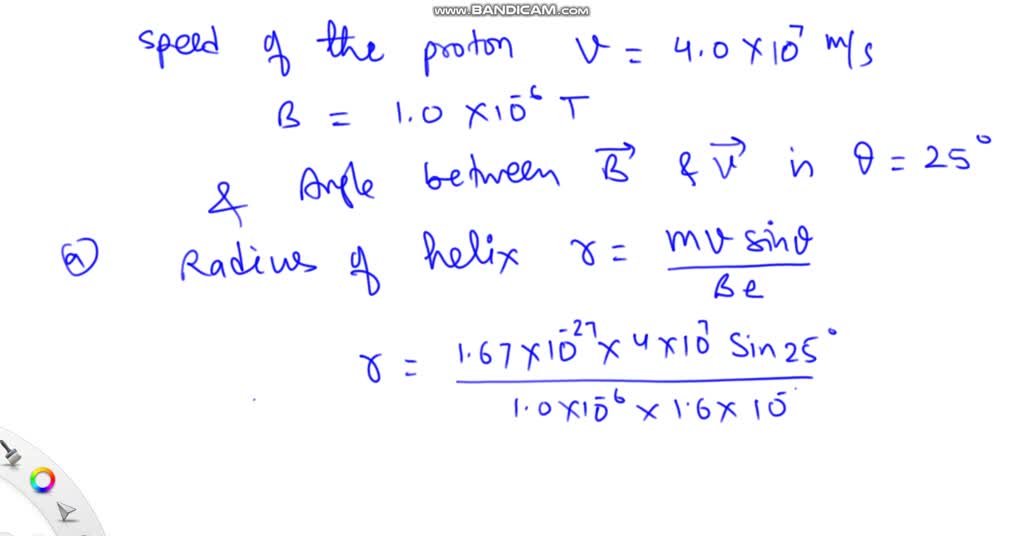 www.BANDICAM.com
speed of the proton v = 4.0 × 10⁷ m/s
B = 1.0 × 10⁻⁶ T
& Angle between B⃗ & v⃗ is θ = 25°
(a) Radius of helix r = mv sinθ / Be
r = 1.67 × 10⁻²⁷ × 4 × 10⁷ Sin 25° / 1.0 × 10⁻⁶ × 1.6 × 10⁻